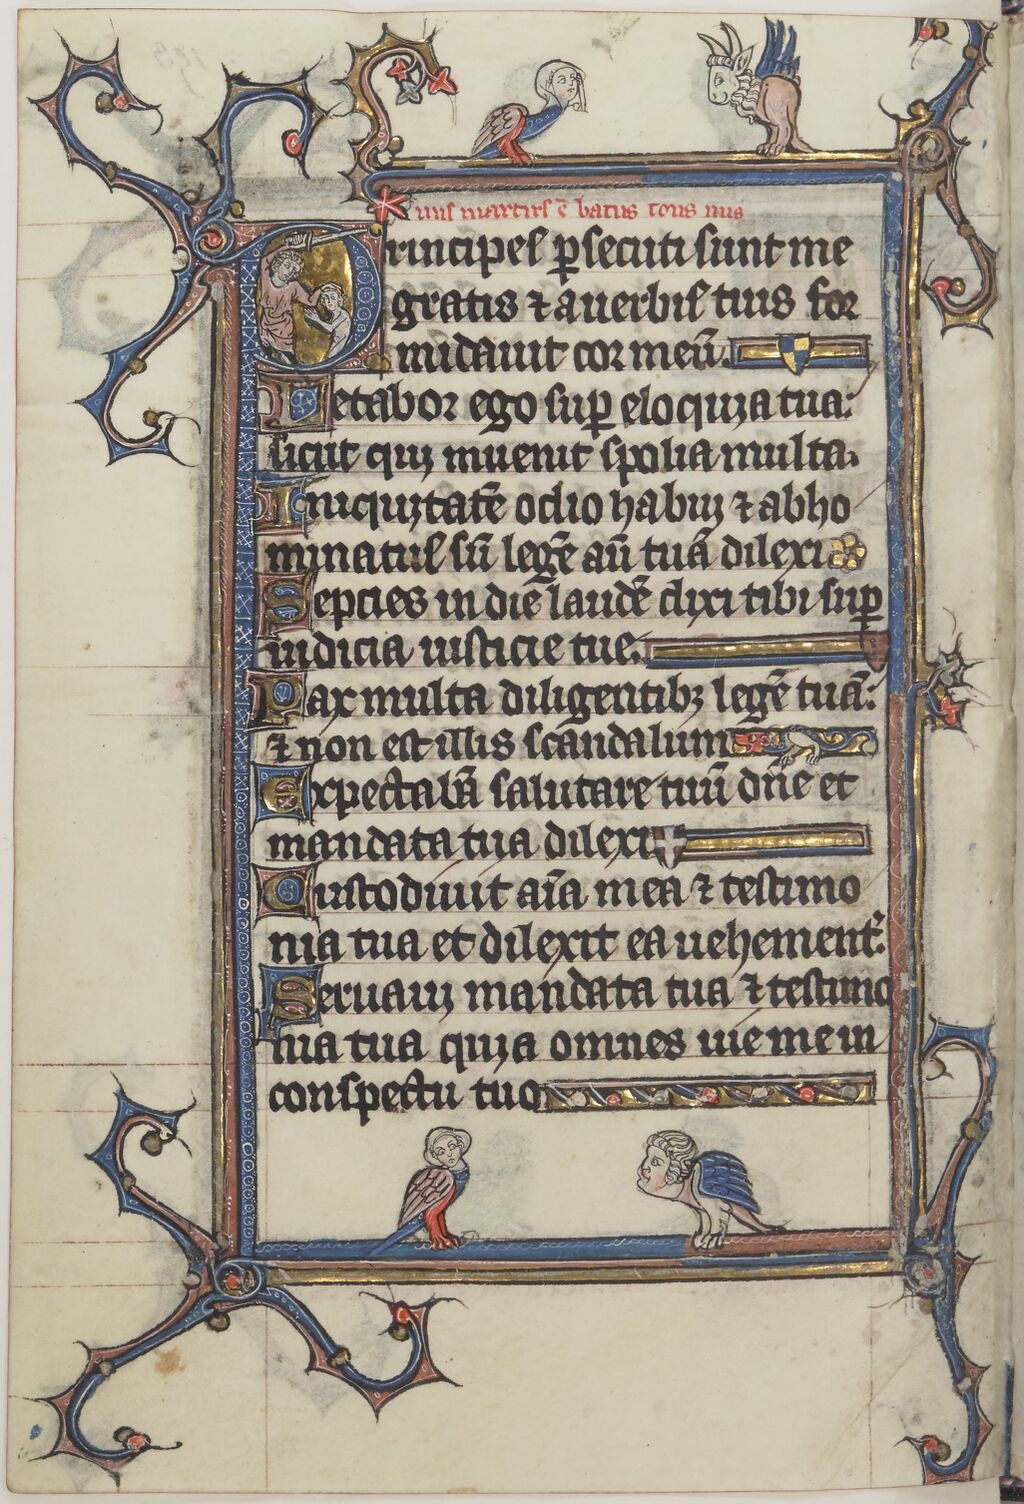 Principes p̱secuti sunt me
gratis ⁊ a uerbis tuis for
midauit cor meū.
Letabor ego suꝑ eloquia tua:
sicut qui inuenit spolia multa.
Iniquitatē odio habui ⁊ abho
minatus sū legē aū tuā dilexi
Septies in die laudē dixi tibi suꝑ
iudicia iusticie tue.
Pax multa diligentibꝫ legē tuā:
⁊ non est illis scandalum
Expectabā salutare tuū dn̄e et
mandata tua dilexi
Custodiuit aīa mea ⁊ testimo
nia tua et dilexit ea uehement᷑.
Seruaui mandata tua ⁊ testimo
nia tua quia omnes uie me in
conspectu tuo